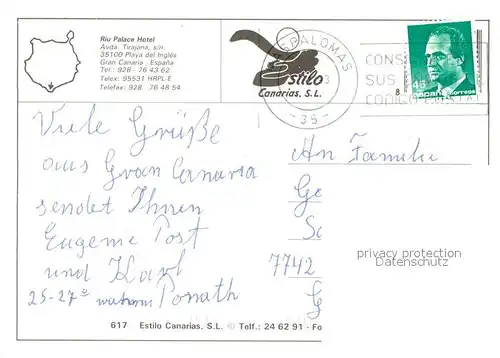 Riu Palace Hotel
Avda. Tirajana, s/n.
35100 Playa del Inglés
Gran Canaria . España
Tel.: 928 - 76 43 62
Telex: 95531 HRPL-E
Telefax: 928 76 48 54
Estilo
Canarias, S.L.
SPALOMAS
-35-
CONS
SUS
CODIGO
45
España correos
8
Viele Grüße
aus Gran Canaria
sendet Ihnen
Eugenie Post
und Karl
25-27° warm Ponath
An Familie
7742
privacy protection
Datenschutz
617 Estilo Canarias, S.L. © Telf.: 24 62 91 - Fo